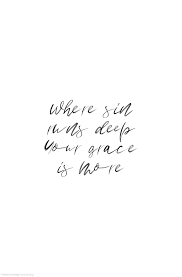 where sin
runs deep
your grace
is more